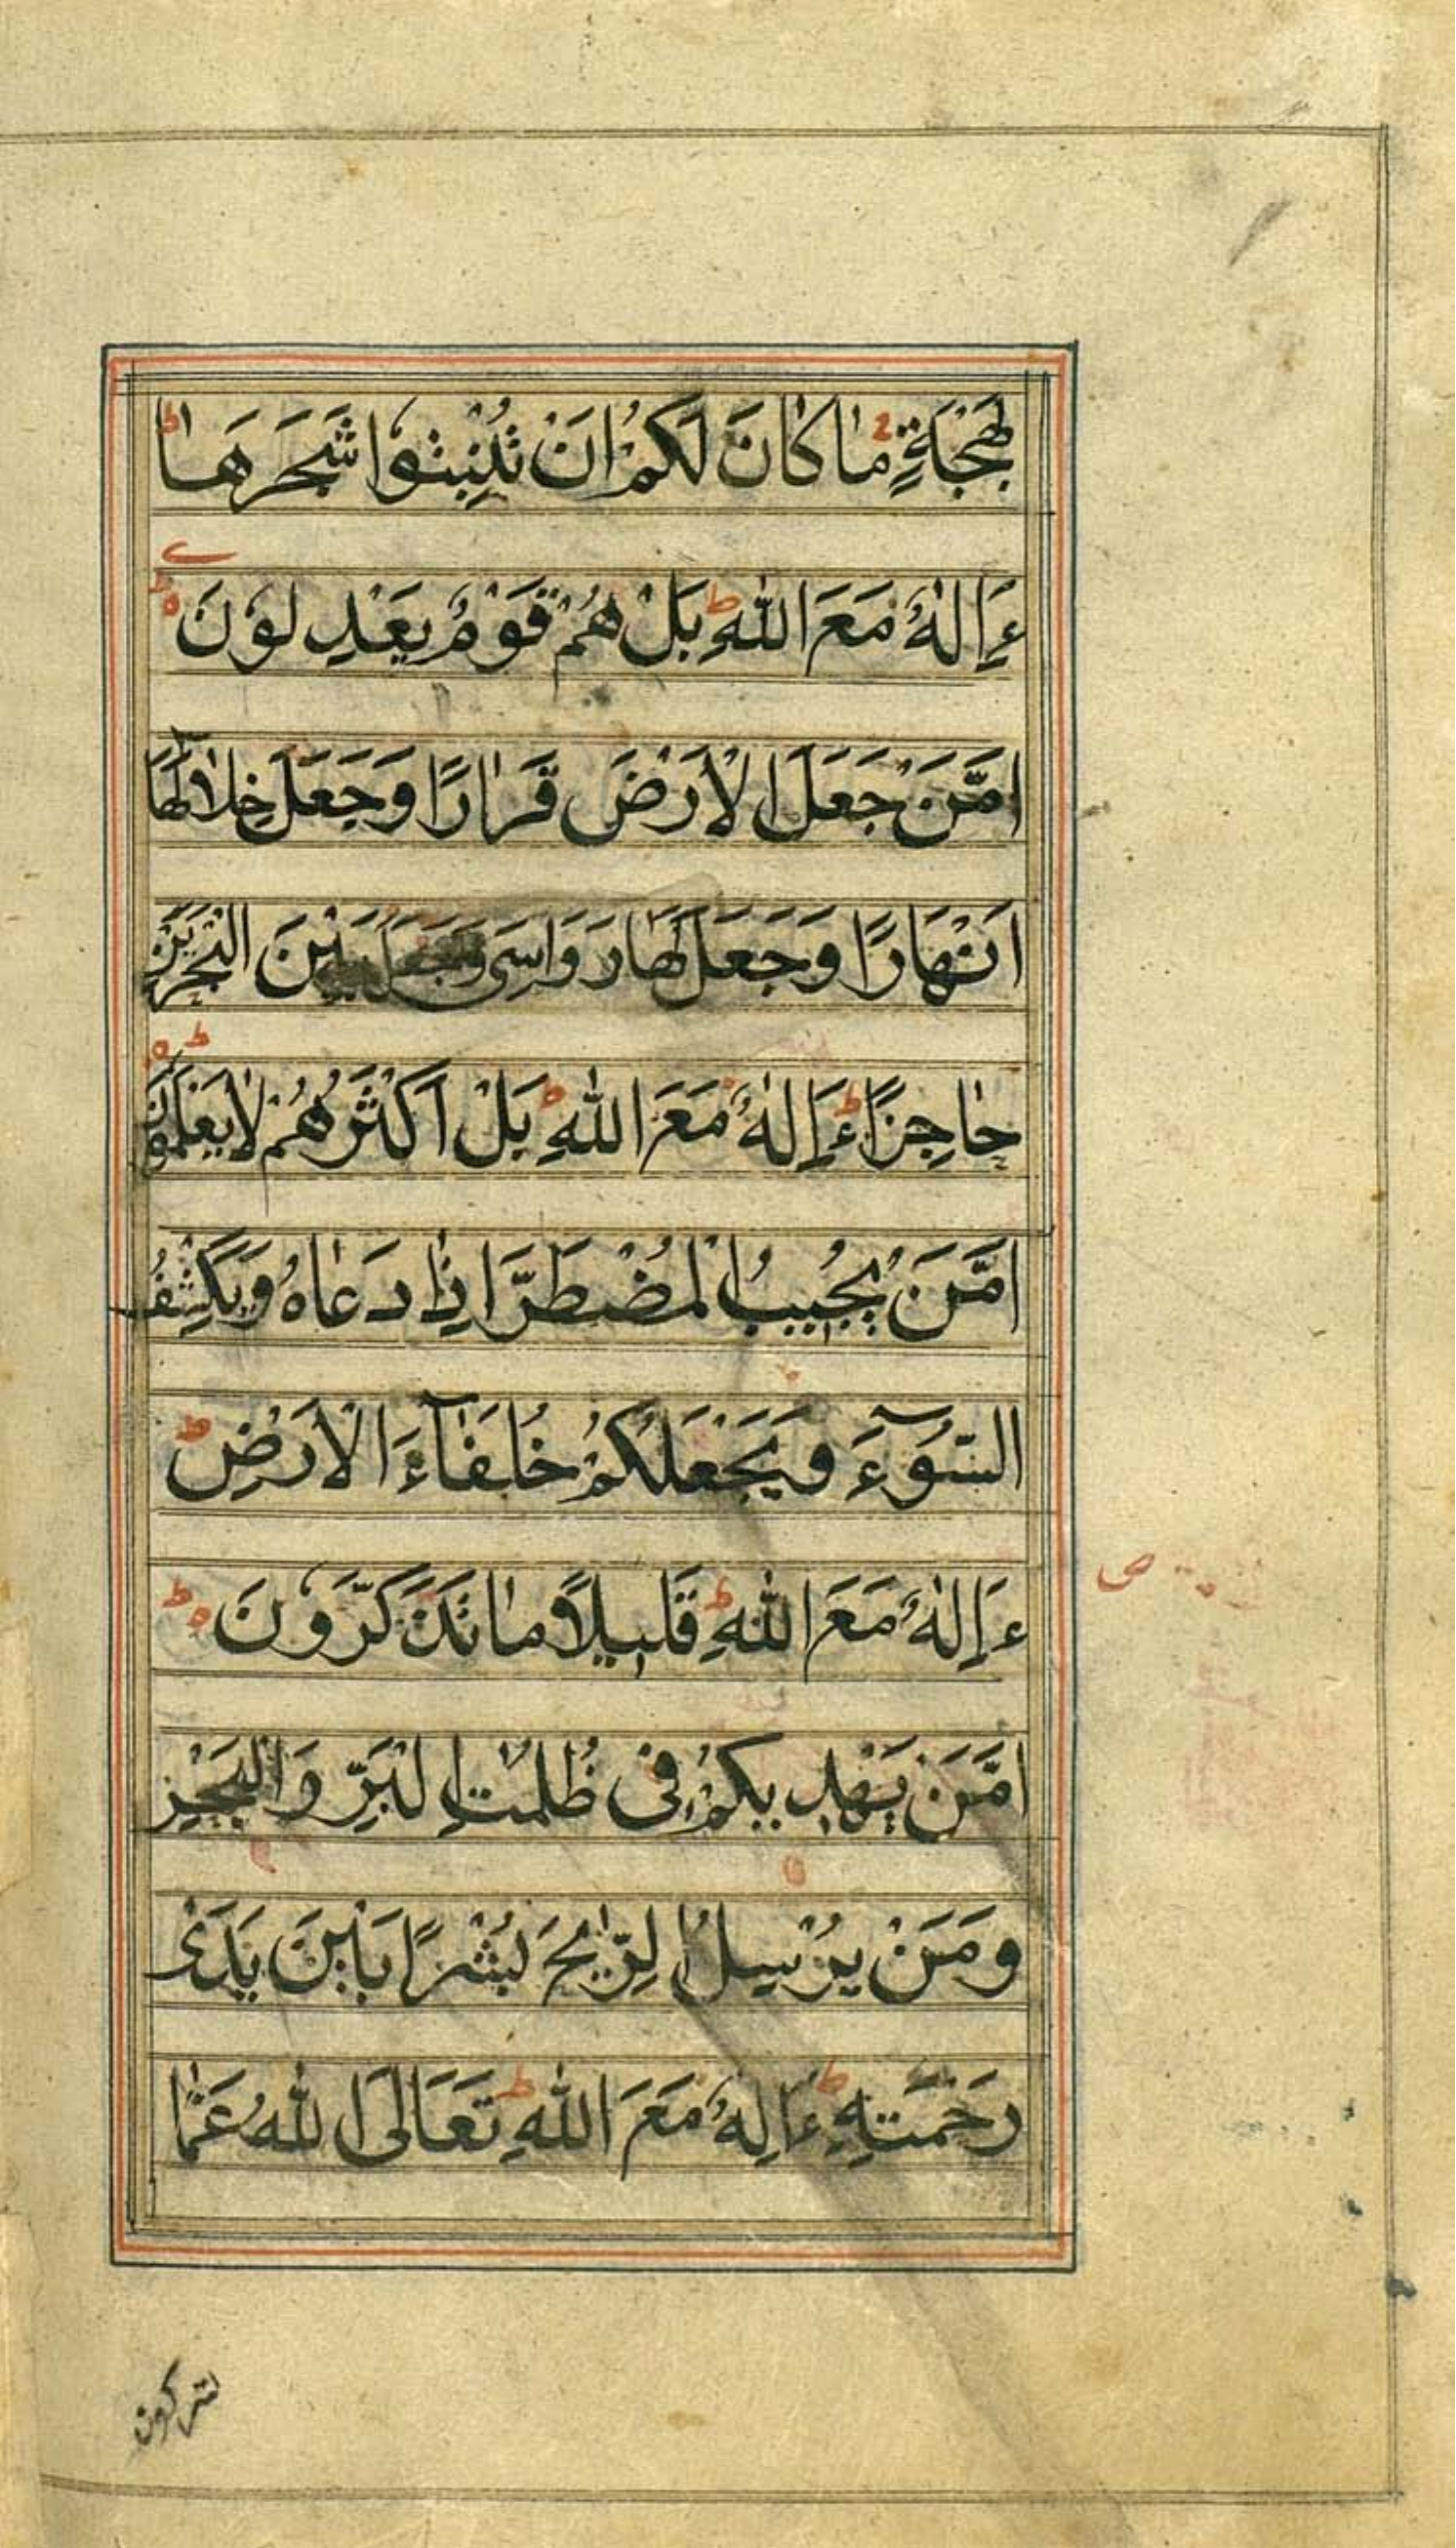 بَهْجَةٍ مَا كَانَ لَكُمْ اَنْ تُنْبِتُوْا شَجَرَهَا ط
ءَاِلٰهٌ مَعَ اللّٰهِ ط بَلْ هُمْ قَوْمٌ يَعْدِلُوْنَ ه ط
اَمَّنْ جَعَلَ الْاَرْضَ قَرَارًا وَجَعَلَ خِلَالَهَا
اَنْهَارًا وَجَعَلَ لَهَا رَوَاسِىَ وَجَعَلَ بَيْنَ الْبَحْرَيْنِ
حَاجِزًا ط ءَاِلٰهٌ مَعَ اللّٰهِ ط بَلْ اَكْثَرُهُمْ لَا يَعْلَمُوْنَ ه ط
اَمَّنْ يُجِيْبُ الْمُضْطَرَّ اِذَا دَعَاهُ وَيَكْشِفُ
السُّوْٓءَ وَيَجْعَلُكُمْ خُلَفَآءَ الْاَرْضِ ط
ءَاِلٰهٌ مَعَ اللّٰهِ ط قَلِيْلًا مَا تَذَكَّرُوْنَ ه ط
اَمَّنْ يَهْدِيْكُمْ فِى ظُلُمٰتِ الْبَرِّ وَالْبَحْرِ
وَمَنْ يُرْسِلُ الرِّيٰحَ بُشْرًا بَيْنَ يَدَىْ
رَحْمَتِهٖ ط ءَاِلٰهٌ مَعَ اللّٰهِ ط تَعَالَى اللّٰهُ عَمَّا